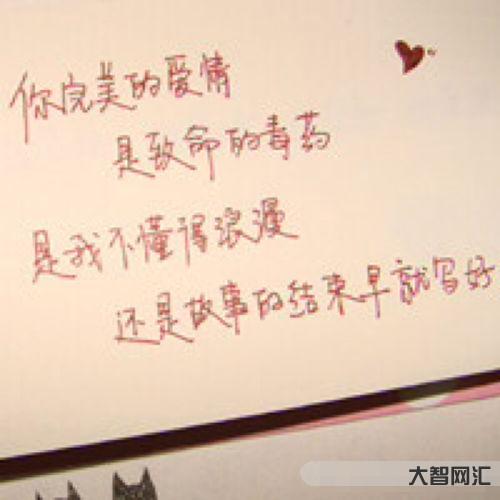 你完美的爱情
是致命的毒药
是我不懂得浪漫
还是故事的结束早就写好
大智网汇